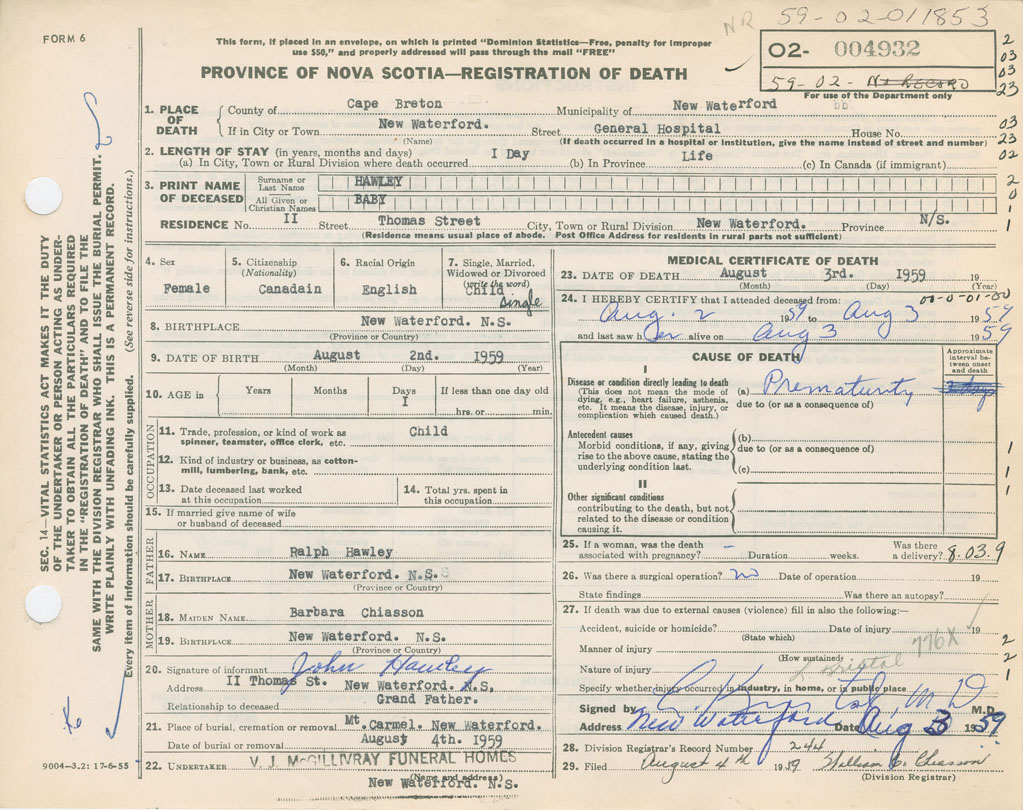 59-02-011853
NR
FORM 6
This form, if placed in an envelope, on which is printed "Dominion Statistics—Free, penalty for improper
use $50," and properly addressed will pass through the mail "FREE"
PROVINCE OF NOVA SCOTIA—REGISTRATION OF DEATH
O2- 004932
59-02- No RECORD
For use of the Department only
2
03
03
23
1. PLACE OF DEATH County of Cape Breton Municipality of New Waterford
If in City or Town New Waterford. Street General Hospital House No.
(Name) (If death occurred in a hospital or institution, give the name instead of street and number)
03
23
02
2. LENGTH OF STAY (in years, months and days)
(a) In City, Town or Rural Division where death occurred I Day (b) In Province Life (c) In Canada (if immigrant)
3. PRINT NAME OF DECEASED
Surname or Last Name HAWLEY
All Given or Christian Names BABY
2
0
1
1
RESIDENCE No. II Street Thomas Street City, Town or Rural Division New Waterford. Province N/S.
(Residence means usual place of abode. Post Office Address for residents in rural parts not sufficient)
4. Sex
Female
5. Citizenship
(Nationality)
Canadain
6. Racial Origin
English
7. Single, Married,
Widowed or Divorced
(write the word)
Child
single
8. BIRTHPLACE New Waterford. N.S.
(Province or Country)
9. DATE OF BIRTH August 2nd. 1959
(Month) (Day) (Year)
10. AGE in Years Months Days If less than one day old
I hrs. or min.
OCCUPATION
11. Trade, profession, or kind of work as
spinner, teamster, office clerk, etc. Child
12. Kind of industry or business, as cotton-
mill, lumbering, bank, etc.
13. Date deceased last worked
at this occupation
14. Total yrs. spent in
this occupation
15. If married give name of wife
or husband of deceased
FATHER
16. NAME Ralph Hawley
17. BIRTHPLACE New Waterford. N.S.S
(Province or Country)
MOTHER
18. MAIDEN NAME Barbara Chiasson
19. BIRTHPLACE New Waterford. N.S.
(Province or Country)
20. Signature of informant John Hawley
Address II Thomas St. New Waterford. N.S.
Relationship to deceased Grand Father.
21. Place of burial, cremation or removal Mt. Carmel. New Waterford.
Date of burial or removal August 4th. 1959
22. UNDERTAKER V. J. McGILLIVRAY FUNERAL HOMES
(Name and address)
New Waterford. N.S.
MEDICAL CERTIFICATE OF DEATH
23. DATE OF DEATH August 3rd. 1959 19
(Month) (Day) (Year)
24. I HEREBY CERTIFY that I attended deceased from: 00-0-01-00
Aug. 2 1959 to Aug 3 1959
and last saw her alive on Aug 3 1959
CAUSE OF DEATH
Approximate
interval be-
tween onset
and death
I
Disease or condition directly leading to death
(This does not mean the mode of
dying, e.g., heart failure, asthenia,
etc. It means the disease, injury, or
complication which caused death.)
(a) Prematurity
due to (or as a consequence of)
Antecedent causes
Morbid conditions, if any, giving
rise to the above cause, stating the
underlying condition last.
(b)
due to (or as a consequence of)
(c)
1
1
1
II
Other significant conditions
contributing to the death, but not
related to the disease or condition
causing it.
25. If a woman, was the death
associated with pregnancy? – Duration weeks. Was there
a delivery? 8.03.9
26. Was there a surgical operation? no Date of operation 19
State findings Was there an autopsy?
27. If death was due to external causes (violence) fill in also the following:—
Accident, suicide or homicide? Date of injury 19
(State which)
776X
Manner of injury
(How sustained)
Nature of injury
Specify whether injury occurred in industry, in home, or in public place
2
2
1
Signed by M.D. M.D.
Address New Waterford Date Aug 3 1959
28. Division Registrar's Record Number 244
29. Filed August 4th 1959 William C. Chiasson
(Division Registrar)
SEC. 14—VITAL STATISTICS ACT MAKES IT THE DUTY
OF THE UNDERTAKER OR PERSON ACTING AS UNDER-
TAKER TO OBTAIN ALL THE PARTICULARS REQUIRED
IN THE "REGISTRATION OF DEATH" AND TO FILE THE
SAME WITH THE DIVISION REGISTRAR WHO SHALL ISSUE THE BURIAL PERMIT.
WRITE PLAINLY WITH UNFADING INK. THIS IS A PERMANENT RECORD.
Every item of information should be carefully supplied. (See reverse side for instructions.)
9004—3.2: 17-6-55